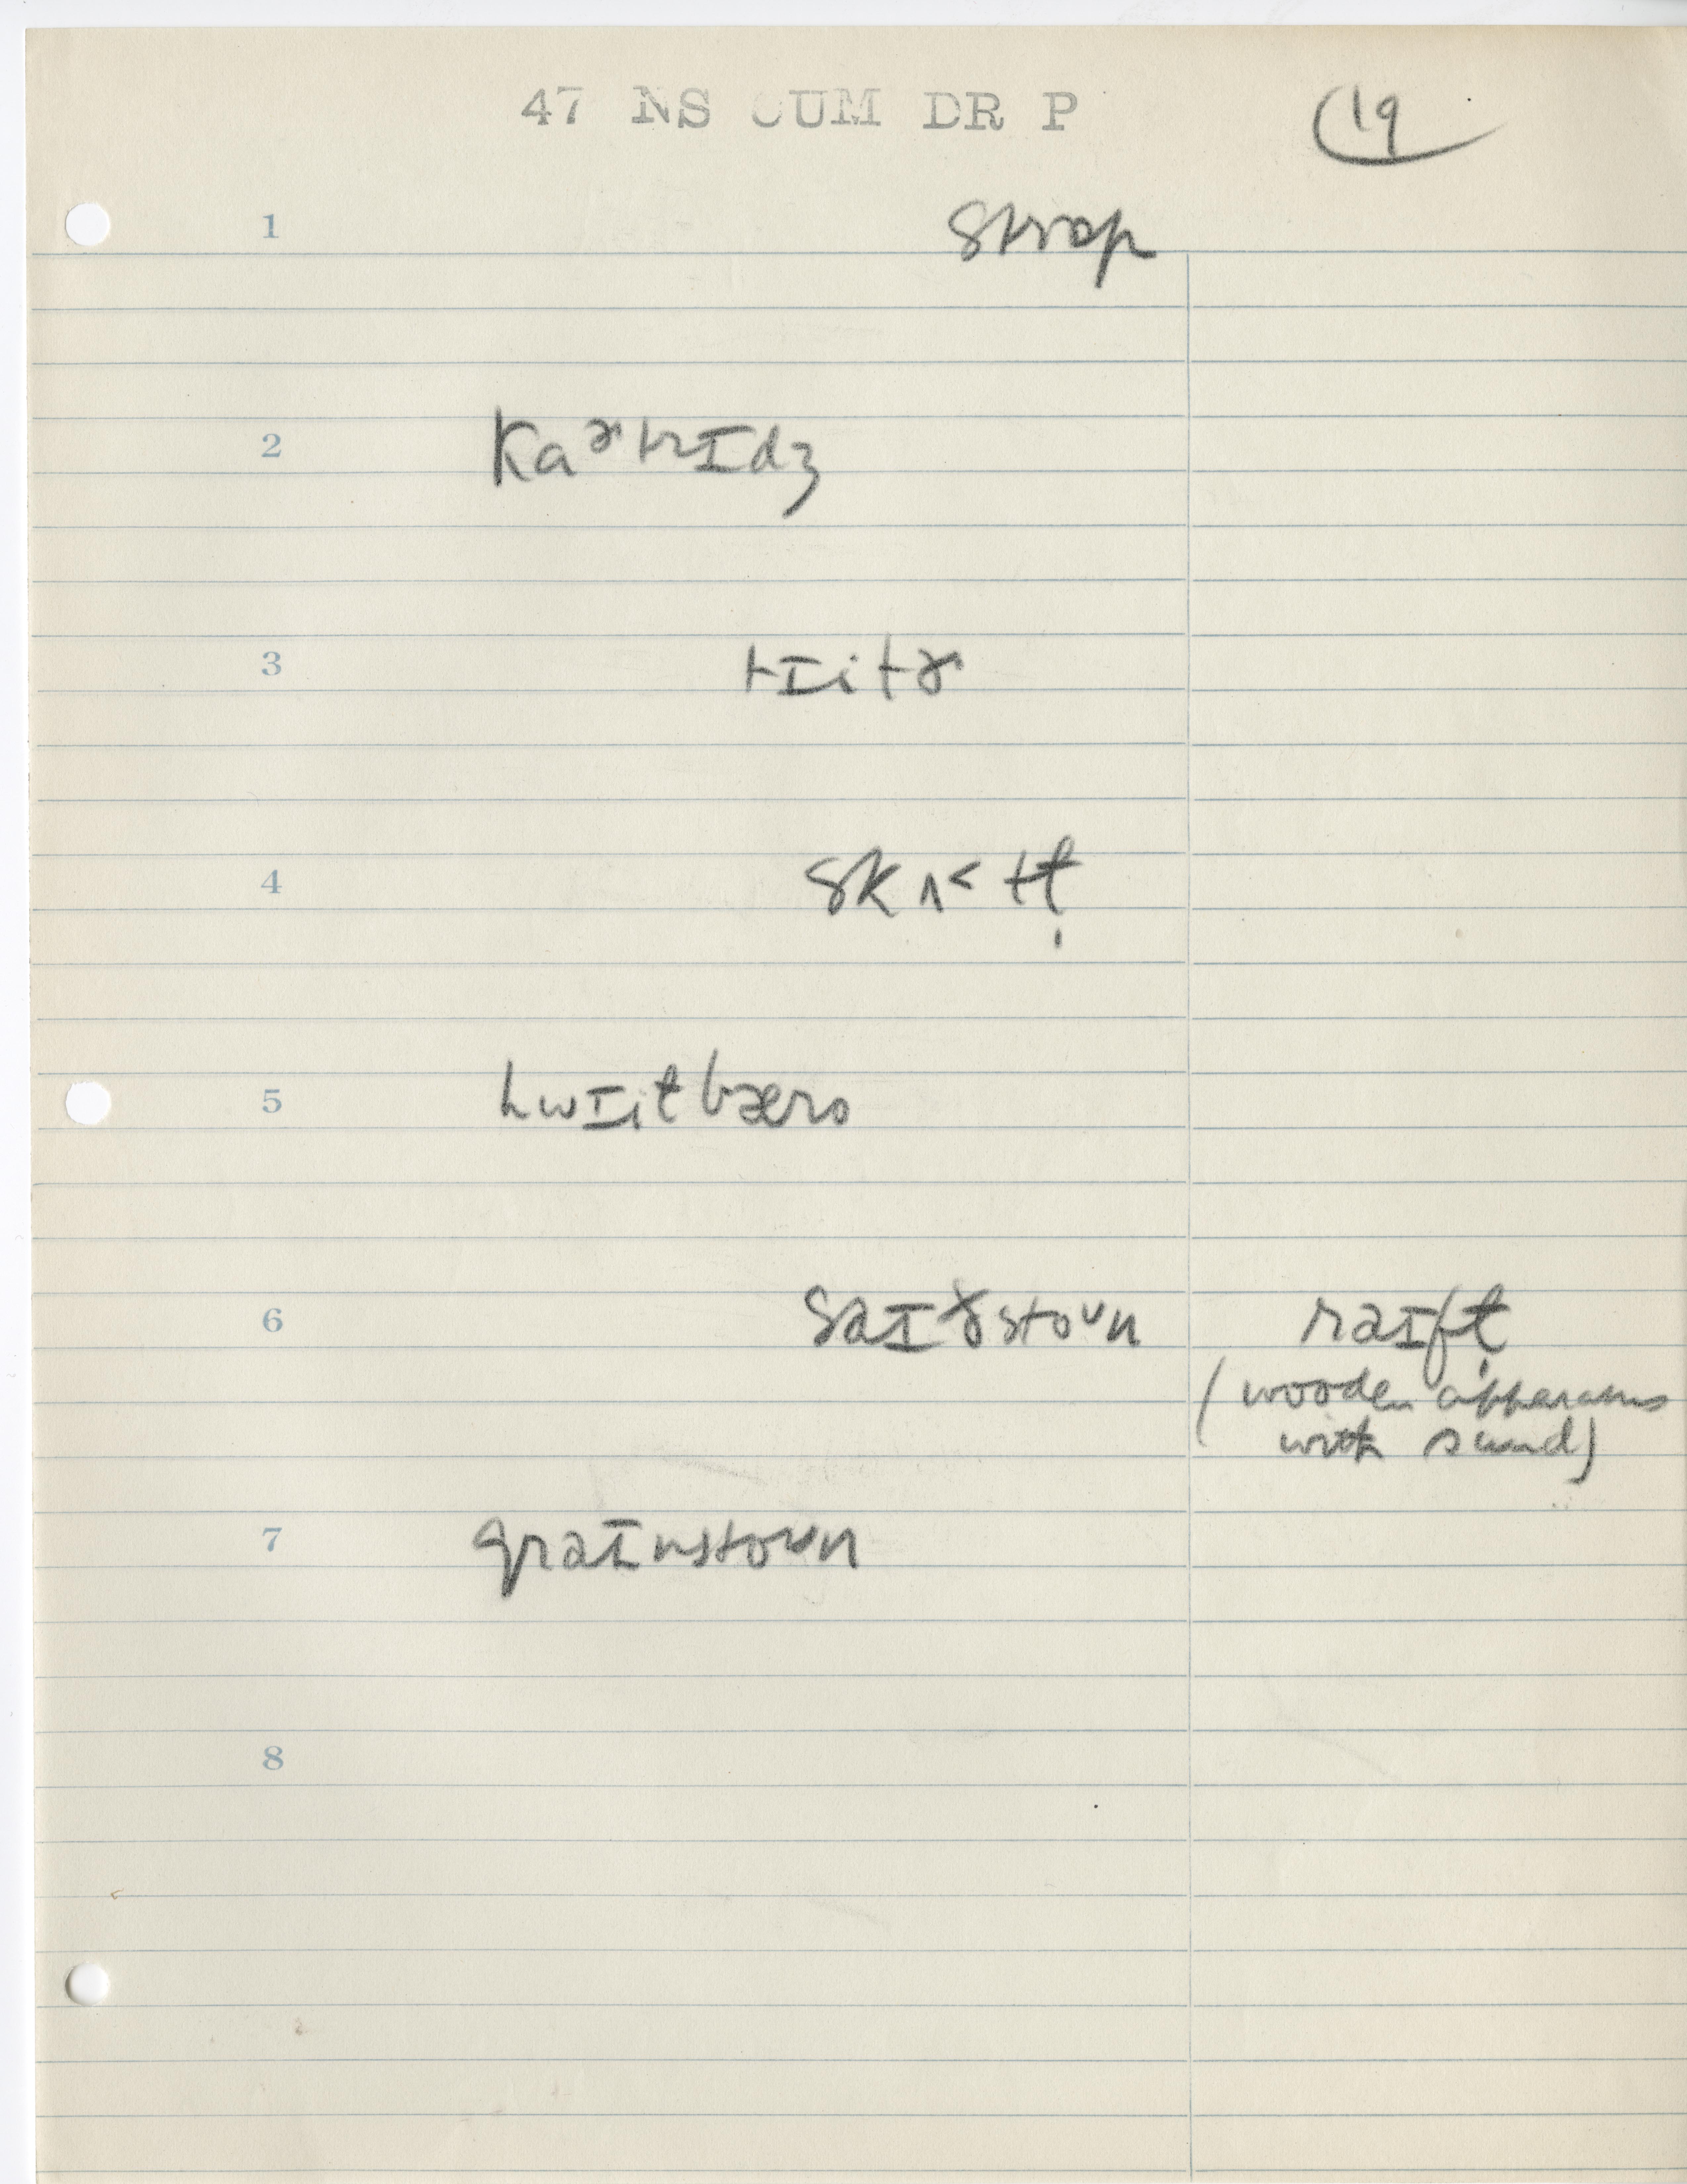 47 NS CUM DR P
19
1 strɒp
2 kaɚtrɪdʒ
3 tɪitɚ
4 skʌ˂tt̬
5 hwɪit̬bæro
6 saɪɚstoᴜn raɪft̬
(wooden apparatus
with sand)
7 graɪnstoᴜn
8